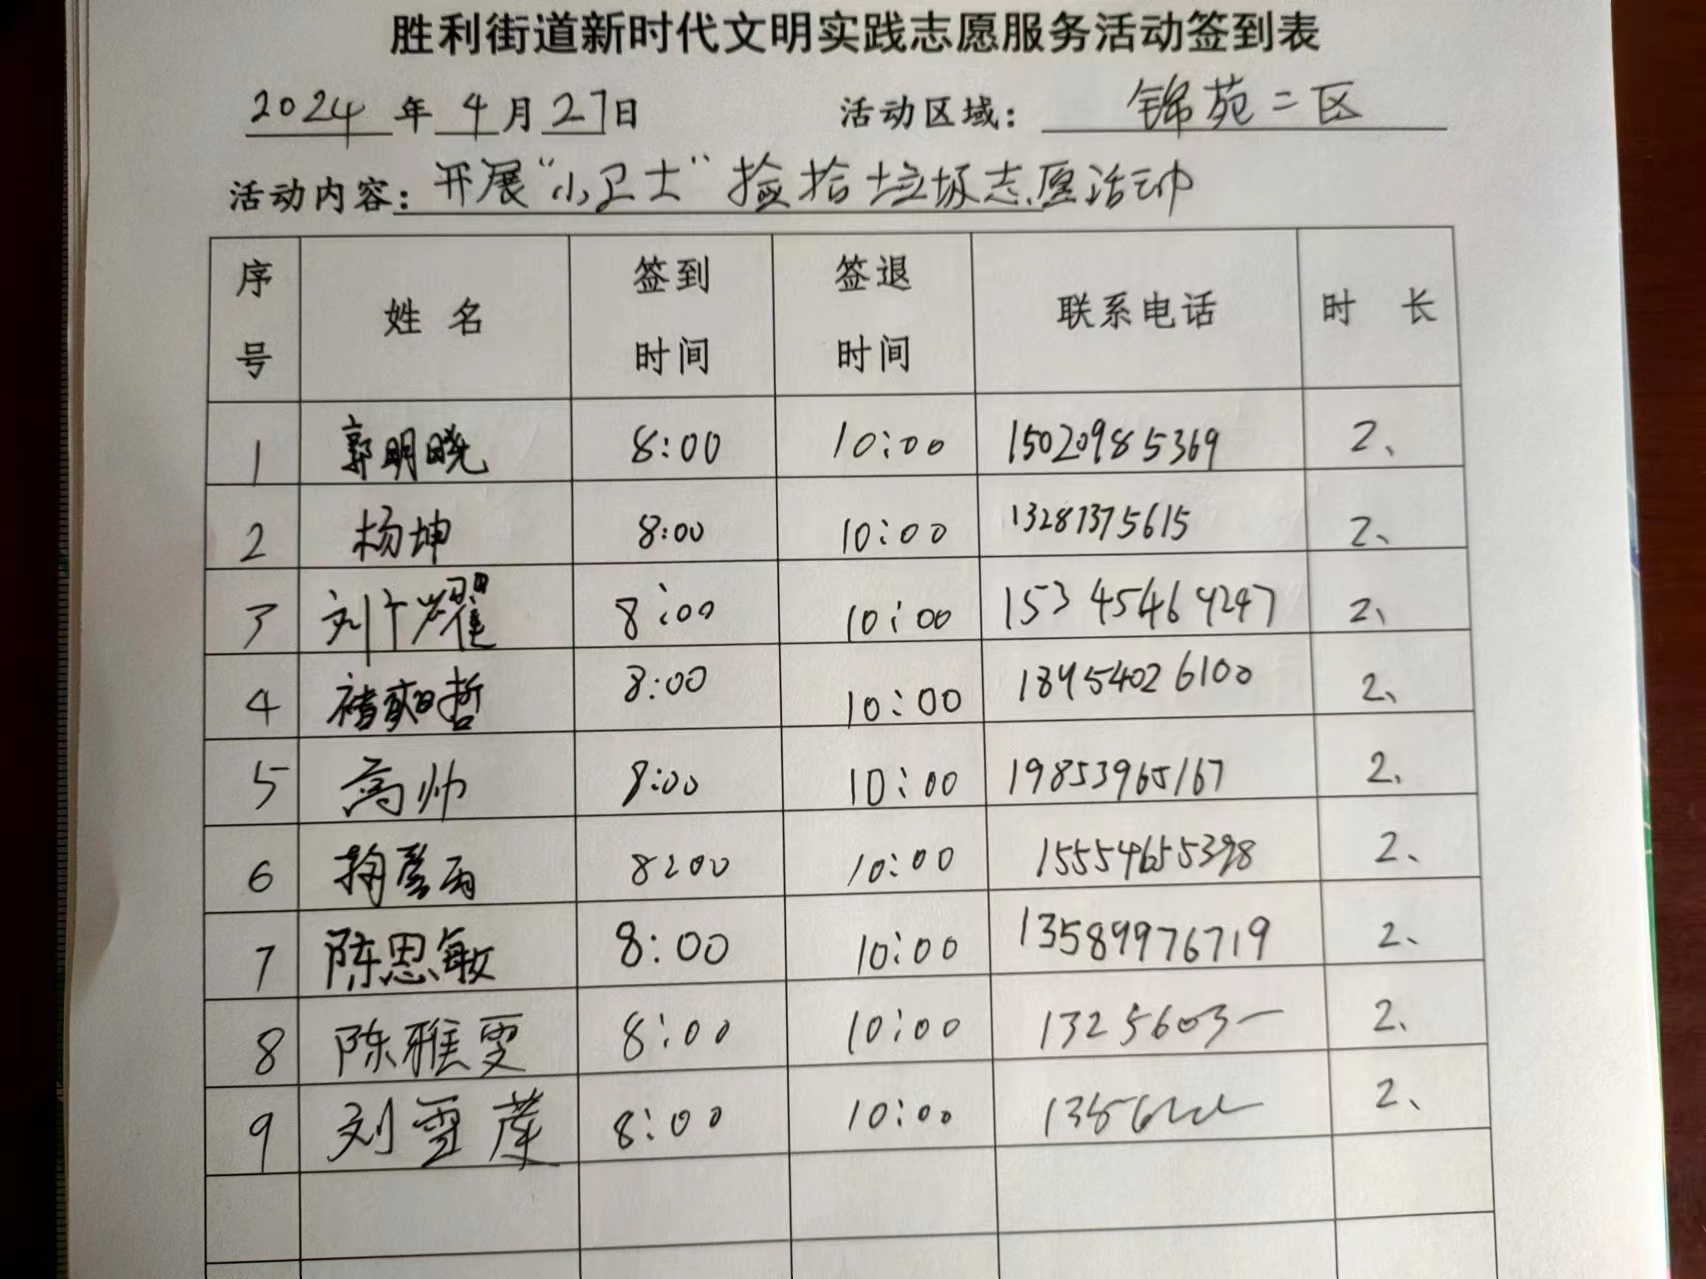 胜利街道新时代文明实践志愿服务活动签到表
2024年4月27日 活动区域：锦苑二区
活动内容：开展“小卫士”捡拾垃圾志愿活动
序号 姓名 签到时间 签退时间 联系电话 时长
1 郭明晓 8:00 10:00 15020985369 2、
2 杨坤 8:00 10:00 13281375615 2、
3 刘 耀 8:00 10:00 15345464247 2、
4 褚奭哲 8:00 10:00 18954026100 2、
5 高帅 8:00 10:00 19853965167 2、
6 8:00 10:00 15554655398 2、
7 陈思敏 8:00 10:00 13589976719 2、
8 陈雅雯 8:00 10:00 1325603 2、
9 刘雪莲 8:00 10:00 2、